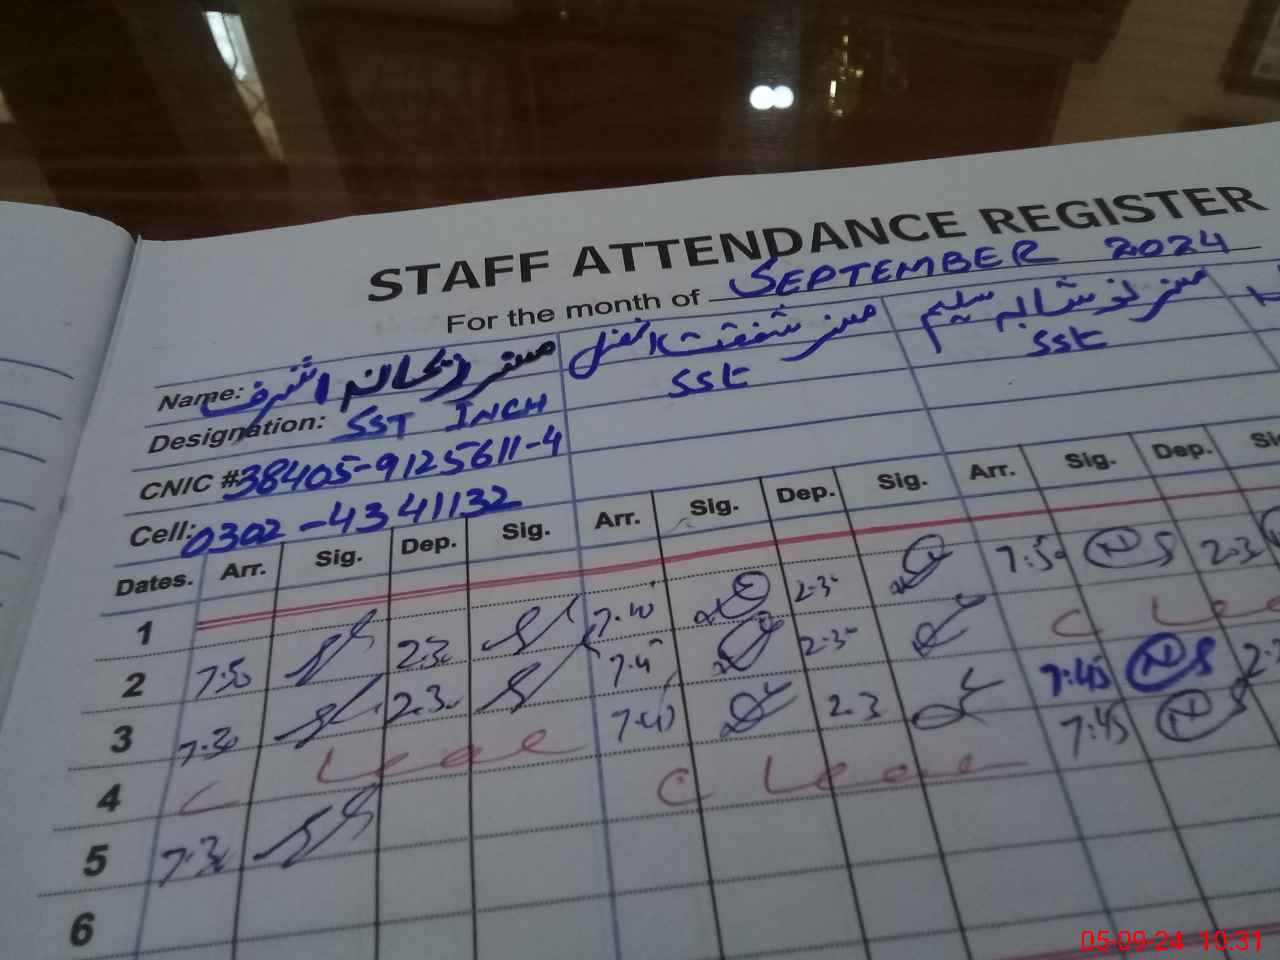 STAFF ATTENDANCE REGISTER
For the month of SEPTEMBER 2024
Name: مسز ریحانہ اشرف مسز شفقت افضل مسز نوشابہ سلیم
Designation: SST INCH SSt SSt
CNIC # 38405-9125611-4
Cell: 0302-4341132
Dates. Arr. Sig. Dep. Sig. Arr. Sig. Dep. Sig. Arr. Sig. Dep.
1
2 7:50 2:30 7:40 2:30 7:50 NS 2:30
3 7:30 2:30 7:4 2:30 C Lea
4 C Leae 7:40 2:3 7:45 NS
5 7:30 C Leave 7:45 NS
6
05-09-24 10:31